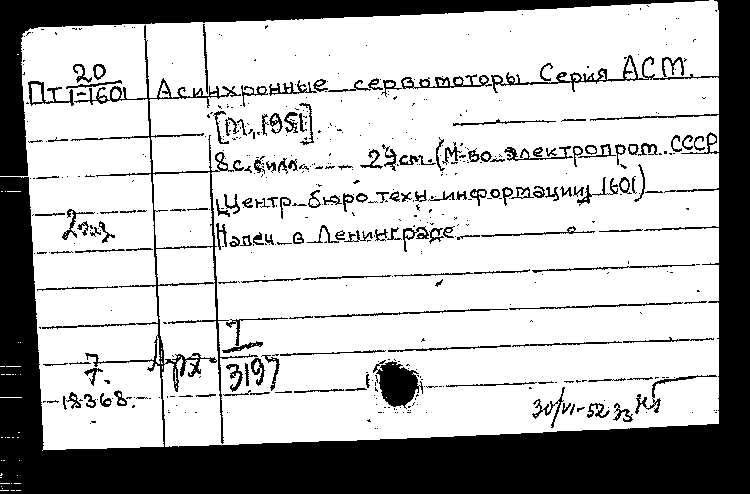 20
Пт I-1601 Асинхронные сервомоторы Серия АСМ.
[М, 1951].
8 с. с илл. 29 см. (М-во электропром. СССР
Центр. бюро техн. информации 1601)
2 экз
Напеч. в Ленинграде.
I
7 Арх.
7. 3197
18368.
30/VI-52